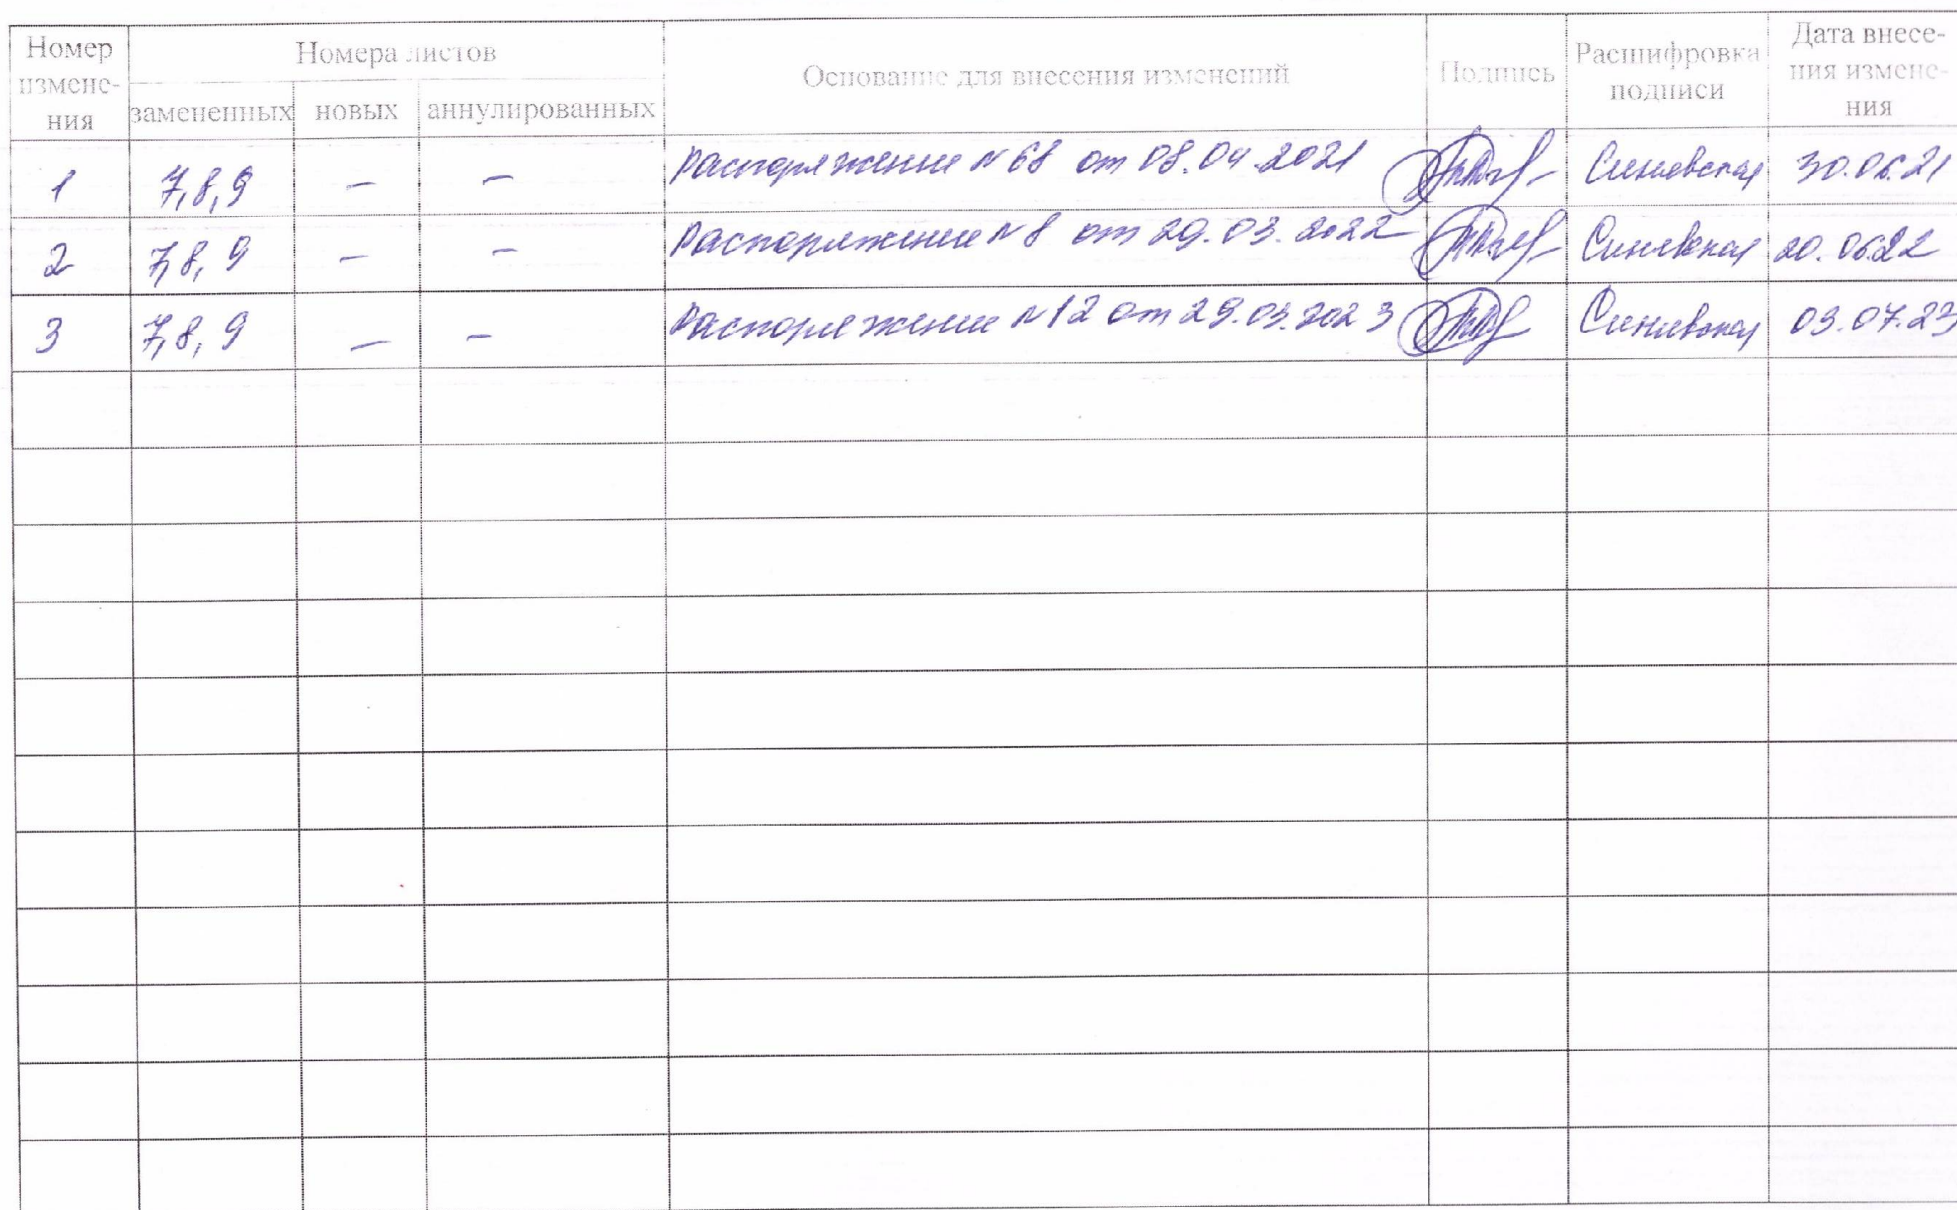 Номер измене- ния
Номера листов
замененных новых аннулированных
Основание для внесения изменений
Подпись
Расшифровка подписи
Дата внесе- ния измене- ния
1 7,8,9 – – Распоряжение №68 от 08.04.2021 Синявская 30.06.21
2 7,8,9 – – Распоряжение №8 от 29.03.2022 Синявская 20.06.22
3 7,8,9 – – Распоряжение №12 от 29.03.2023 Синявская 03.07.23